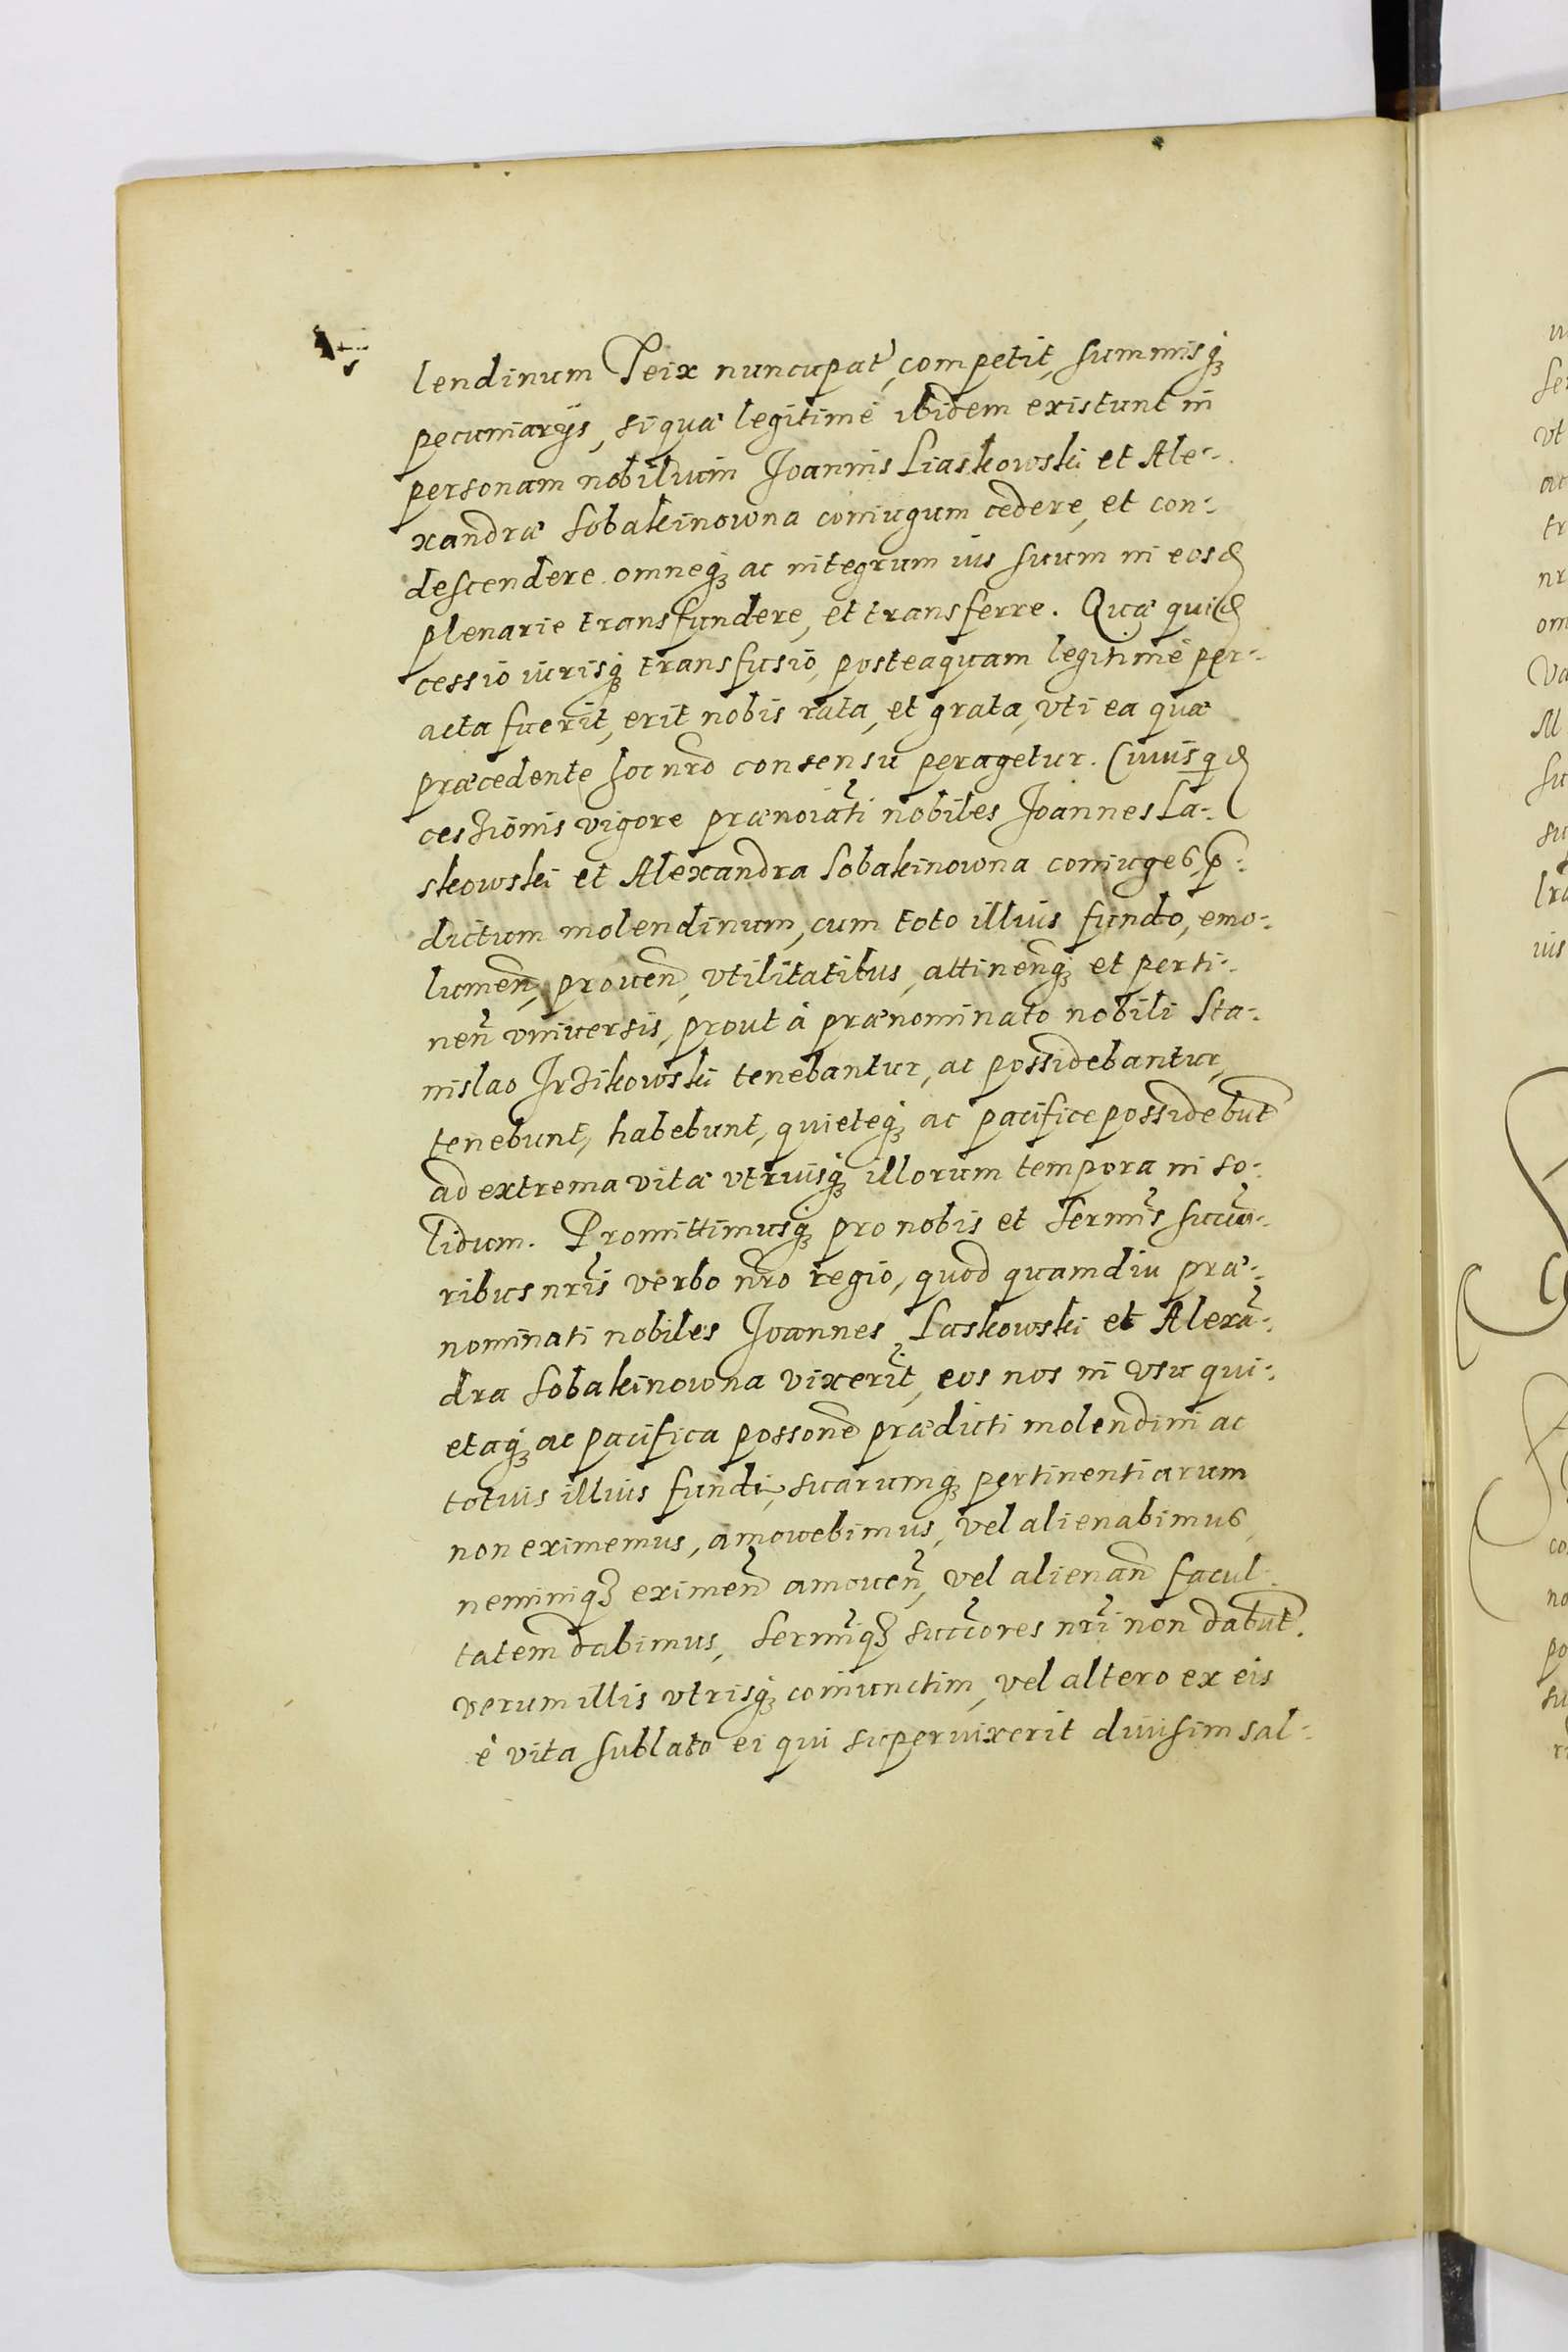 lendinum Teix nuncupat, competit, summisq;
pecuniarijs, si quæ legitimè ibidem existunt in
personam nobilium Joannis Liaskowski et Ale-
xandræ Sobakinowna coniugum cedere, et con-
descendere omneq; ac integrum ius suum in eosd
plenarie transfundere, et transferre. Quæ quid
cessio iurisq; transfusio, posteaquam legitimè per-
acta fuerit, erit nobis rata, et grata, vti ea quæ
præcedente hoc nro consensu peragetur. Cuiusqd
cessionis vigore prænoiati nobiles Joannes La-
skowski et Alexandra Sobakinowna coniuges, p-
dictum molendinum, cum toto illius fundo, emo-
lumen, prouen, vtilitatibus, attinenq; et perti-
nen vniuersis, prout à prænominato nobili Sta-
nislao Irzikowski tenebantur, ac possidebantur,
tenebunt, habebunt, quieteq; ac pacifice possidebut
ad extrema vitæ vtriusq; illorum tempora in so-
lidum. Promittimusq; pro nobis et Sermis succo-
ribus nris verbo nro regio, quod quamdiu præ-
nominati nobiles Joannes Laskowski et Alexa-
dra Sobakinowna vixerit, eos nos in vsu qui-
etaq; ac pacifica possone prædicti molendini ac
totius illius fundi, suarumq; pertinentiarum
non eximemus, amouebimus, vel alienabimus,
neminiq; eximen amouen, vel alienan facul-
tatem dabimus, Sermiq; succores nri non dabut.
verum illis vtrisq; coniunctim, vel altero ex eis
è vita sublato ei qui superuixerit diuisim sal-